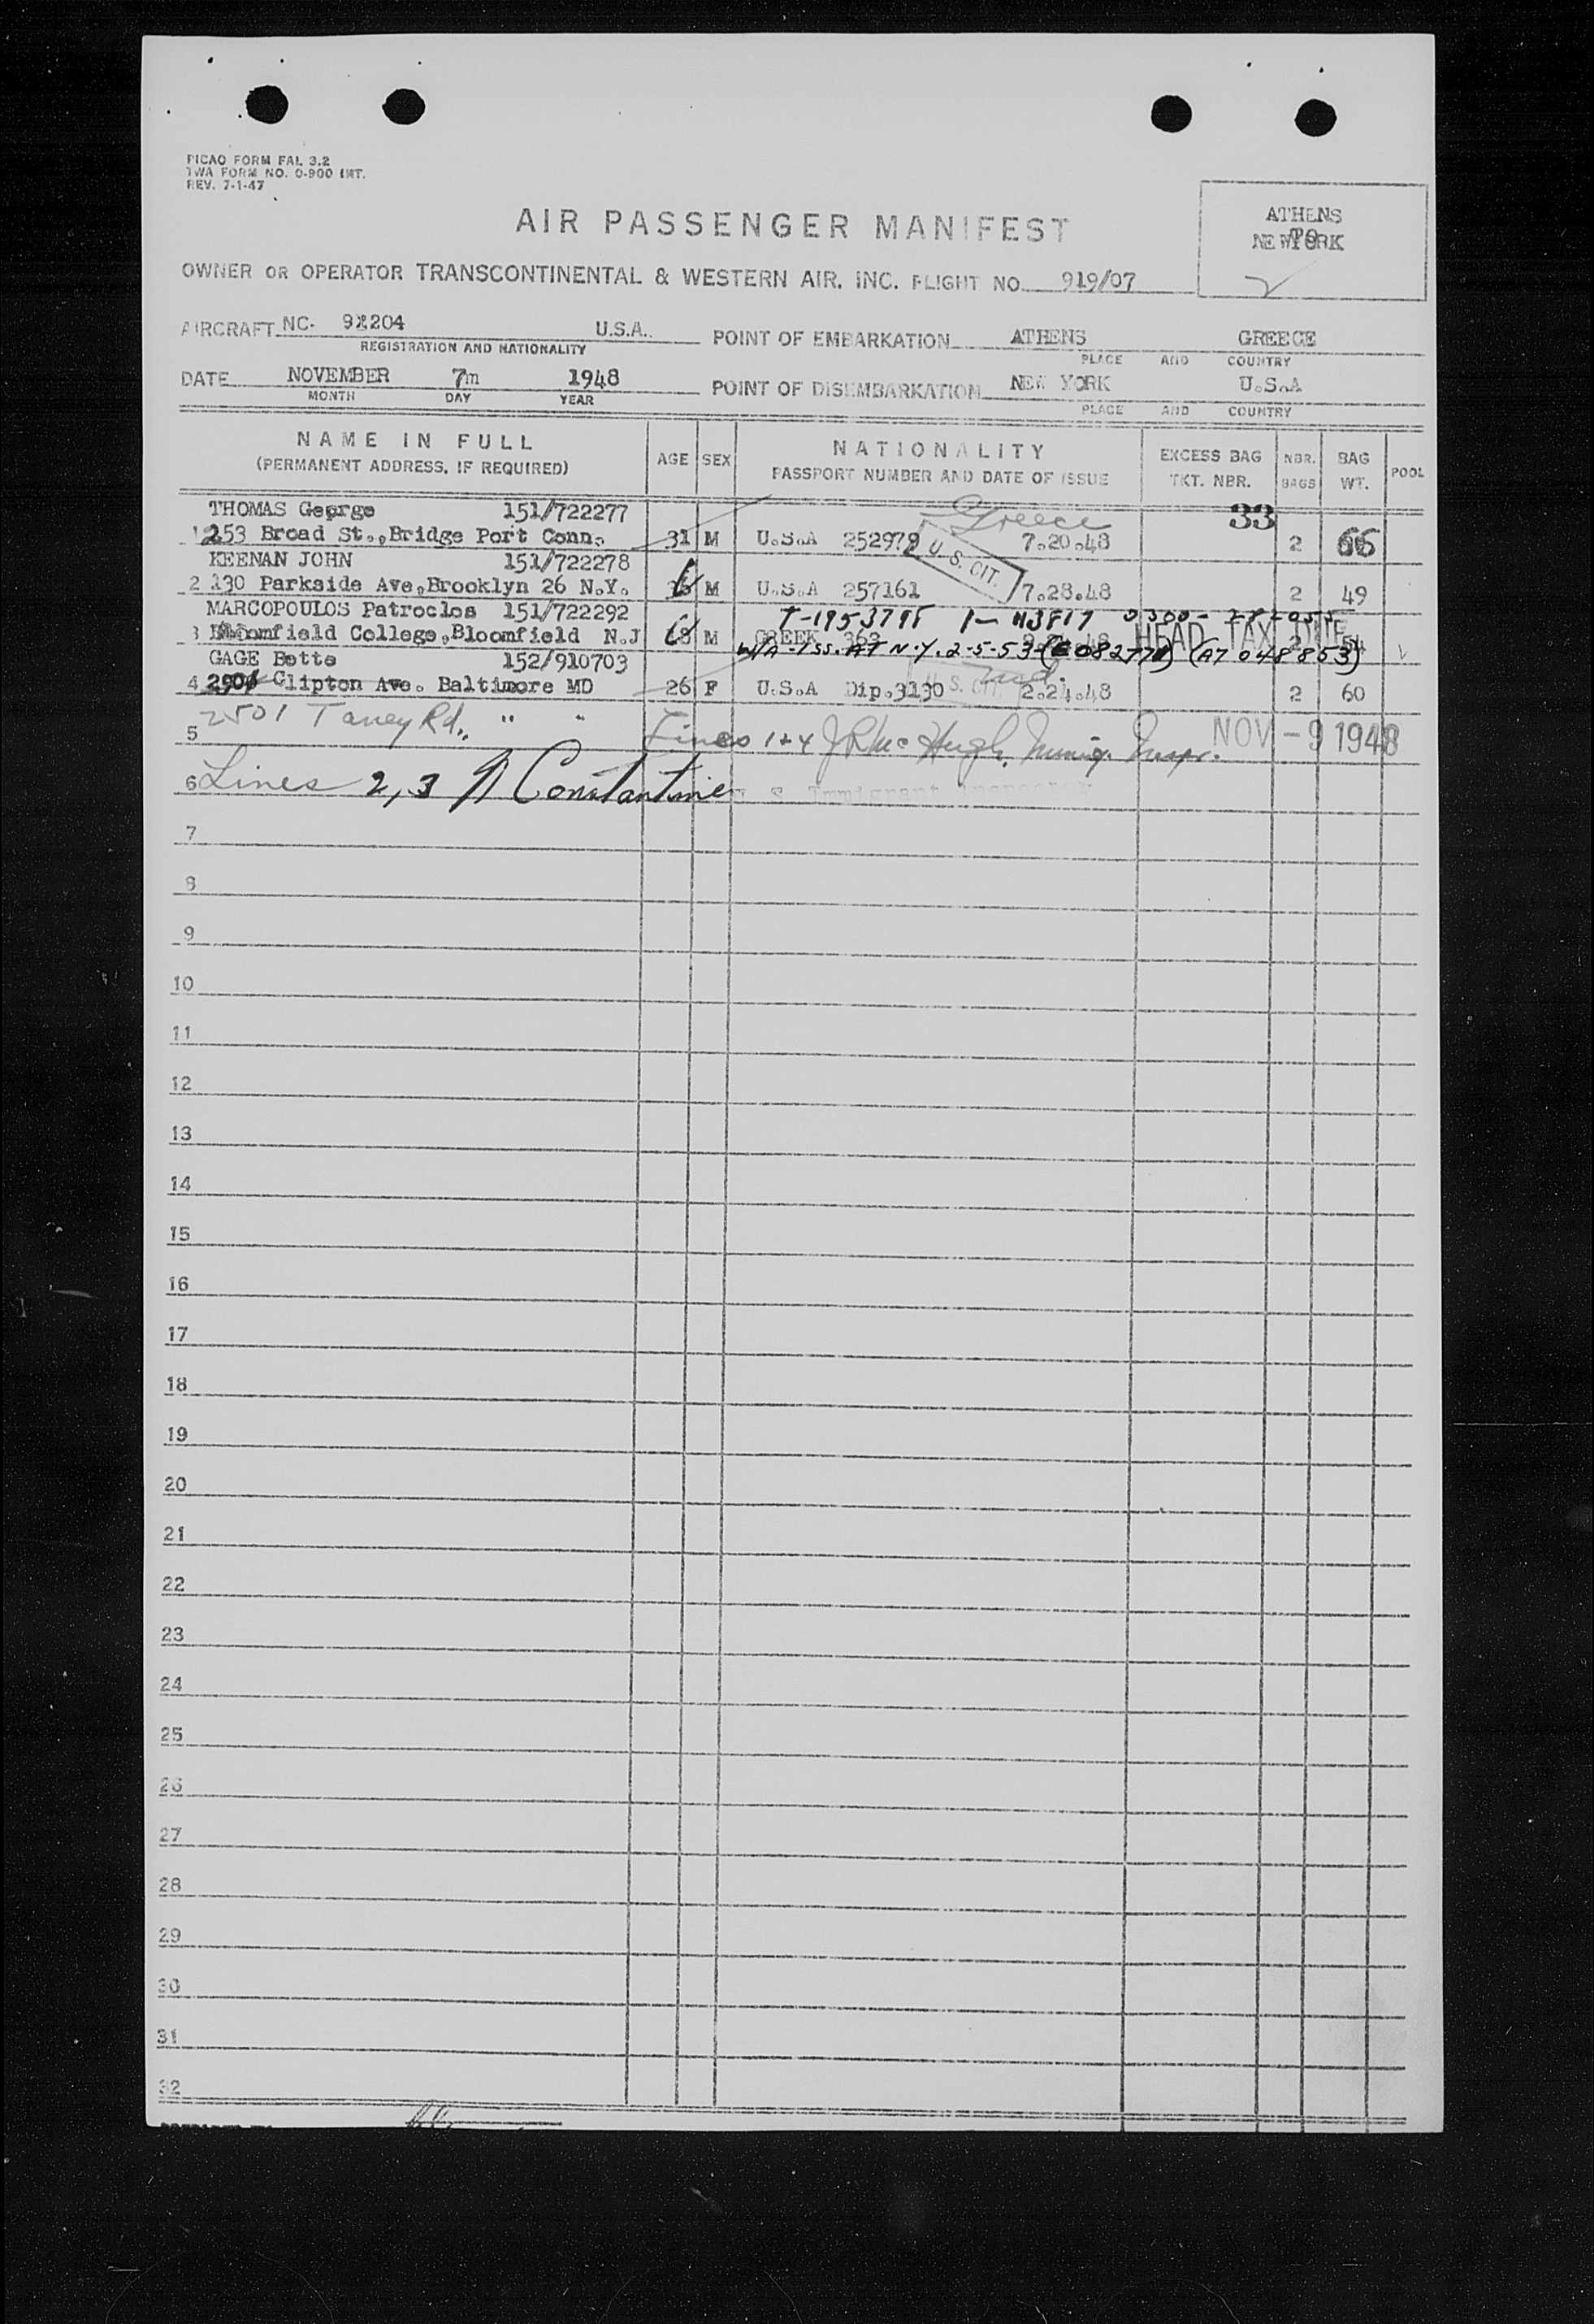 PICAO FORM FAL 3.2
TWA FORM NO. O-900 INT.
REV. 7-1-47
AIR PASSENGER MANIFEST
ATHENS
TO
NEW YORK
OWNER OR OPERATOR TRANSCONTINENTAL & WESTERN AIR, INC. FLIGHT NO. 919/07
AIRCRAFT NC- 204 U.S.A. POINT OF EMBARKATION ATHENS GREECE
REGISTRATION AND NATIONALITY PLACE AND COUNTRY
DATE NOVEMBER 7m 1948 POINT OF DISEMBARKATION NEW YORK U.S.A
MONTH DAY YEAR PLACE AND COUNTRY
NAME IN FULL AGE SEX NATIONALITY EXCESS BAG NBR. BAG POOL
(PERMANENT ADDRESS, IF REQUIRED) PASSPORT NUMBER AND DATE OF ISSUE TKT. NBR. BAGS WT.
THOMAS George 151/722277 Greece 33
1 253 Broad St.,Bridge Port Conn. 31 M U.S.A 252979 7.20.48 2 66
U. S. CIT.
KEENAN JOHN 151/722278
2 130 Parkside Ave,Brooklyn 26 N.Y. M U.S.A 257161 7.28.48 2 49
MARCOPOULOS Patroclos 151/722292 T-1953795 1-
3 Bloomfield College,Bloomfield N.J M GREEK 363 HEAD TAX DUE 2
W/A-ISS. AT N.Y. 2-5-53 (A7 048853)
GAGE Bette 152/910703 Md.
4 Clipton Ave. Baltimore MD 26 F U.S.A Dip.3130 U. S. CIT. 2.24.48 2 60
2501 Taney Rd., " "
5 Lines 1+4 J R McHugh, Immig. Inspr. NOV -9 1948
6 Lines 2,3 Constantine Immigrant Inspector
7
8
9
10
11
12
13
14
15
16
17
18
19
20
21
22
23
24
25
26
27
28
29
30
31
32